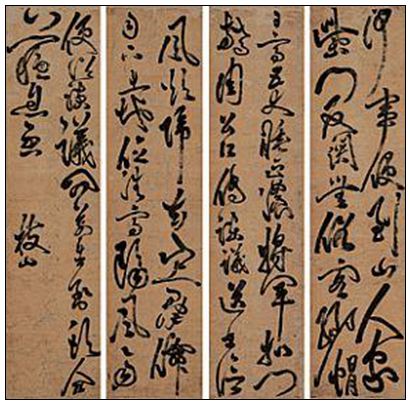 何事便到山人家
柴門反關無俗客紗帽
日高丈睡正濃將軍扣門
驚周公口傳諫議送書信
風欲歸去山上群
司下土地位清高隔風雨
便諫議問蒼生到頭合
息否
枝山